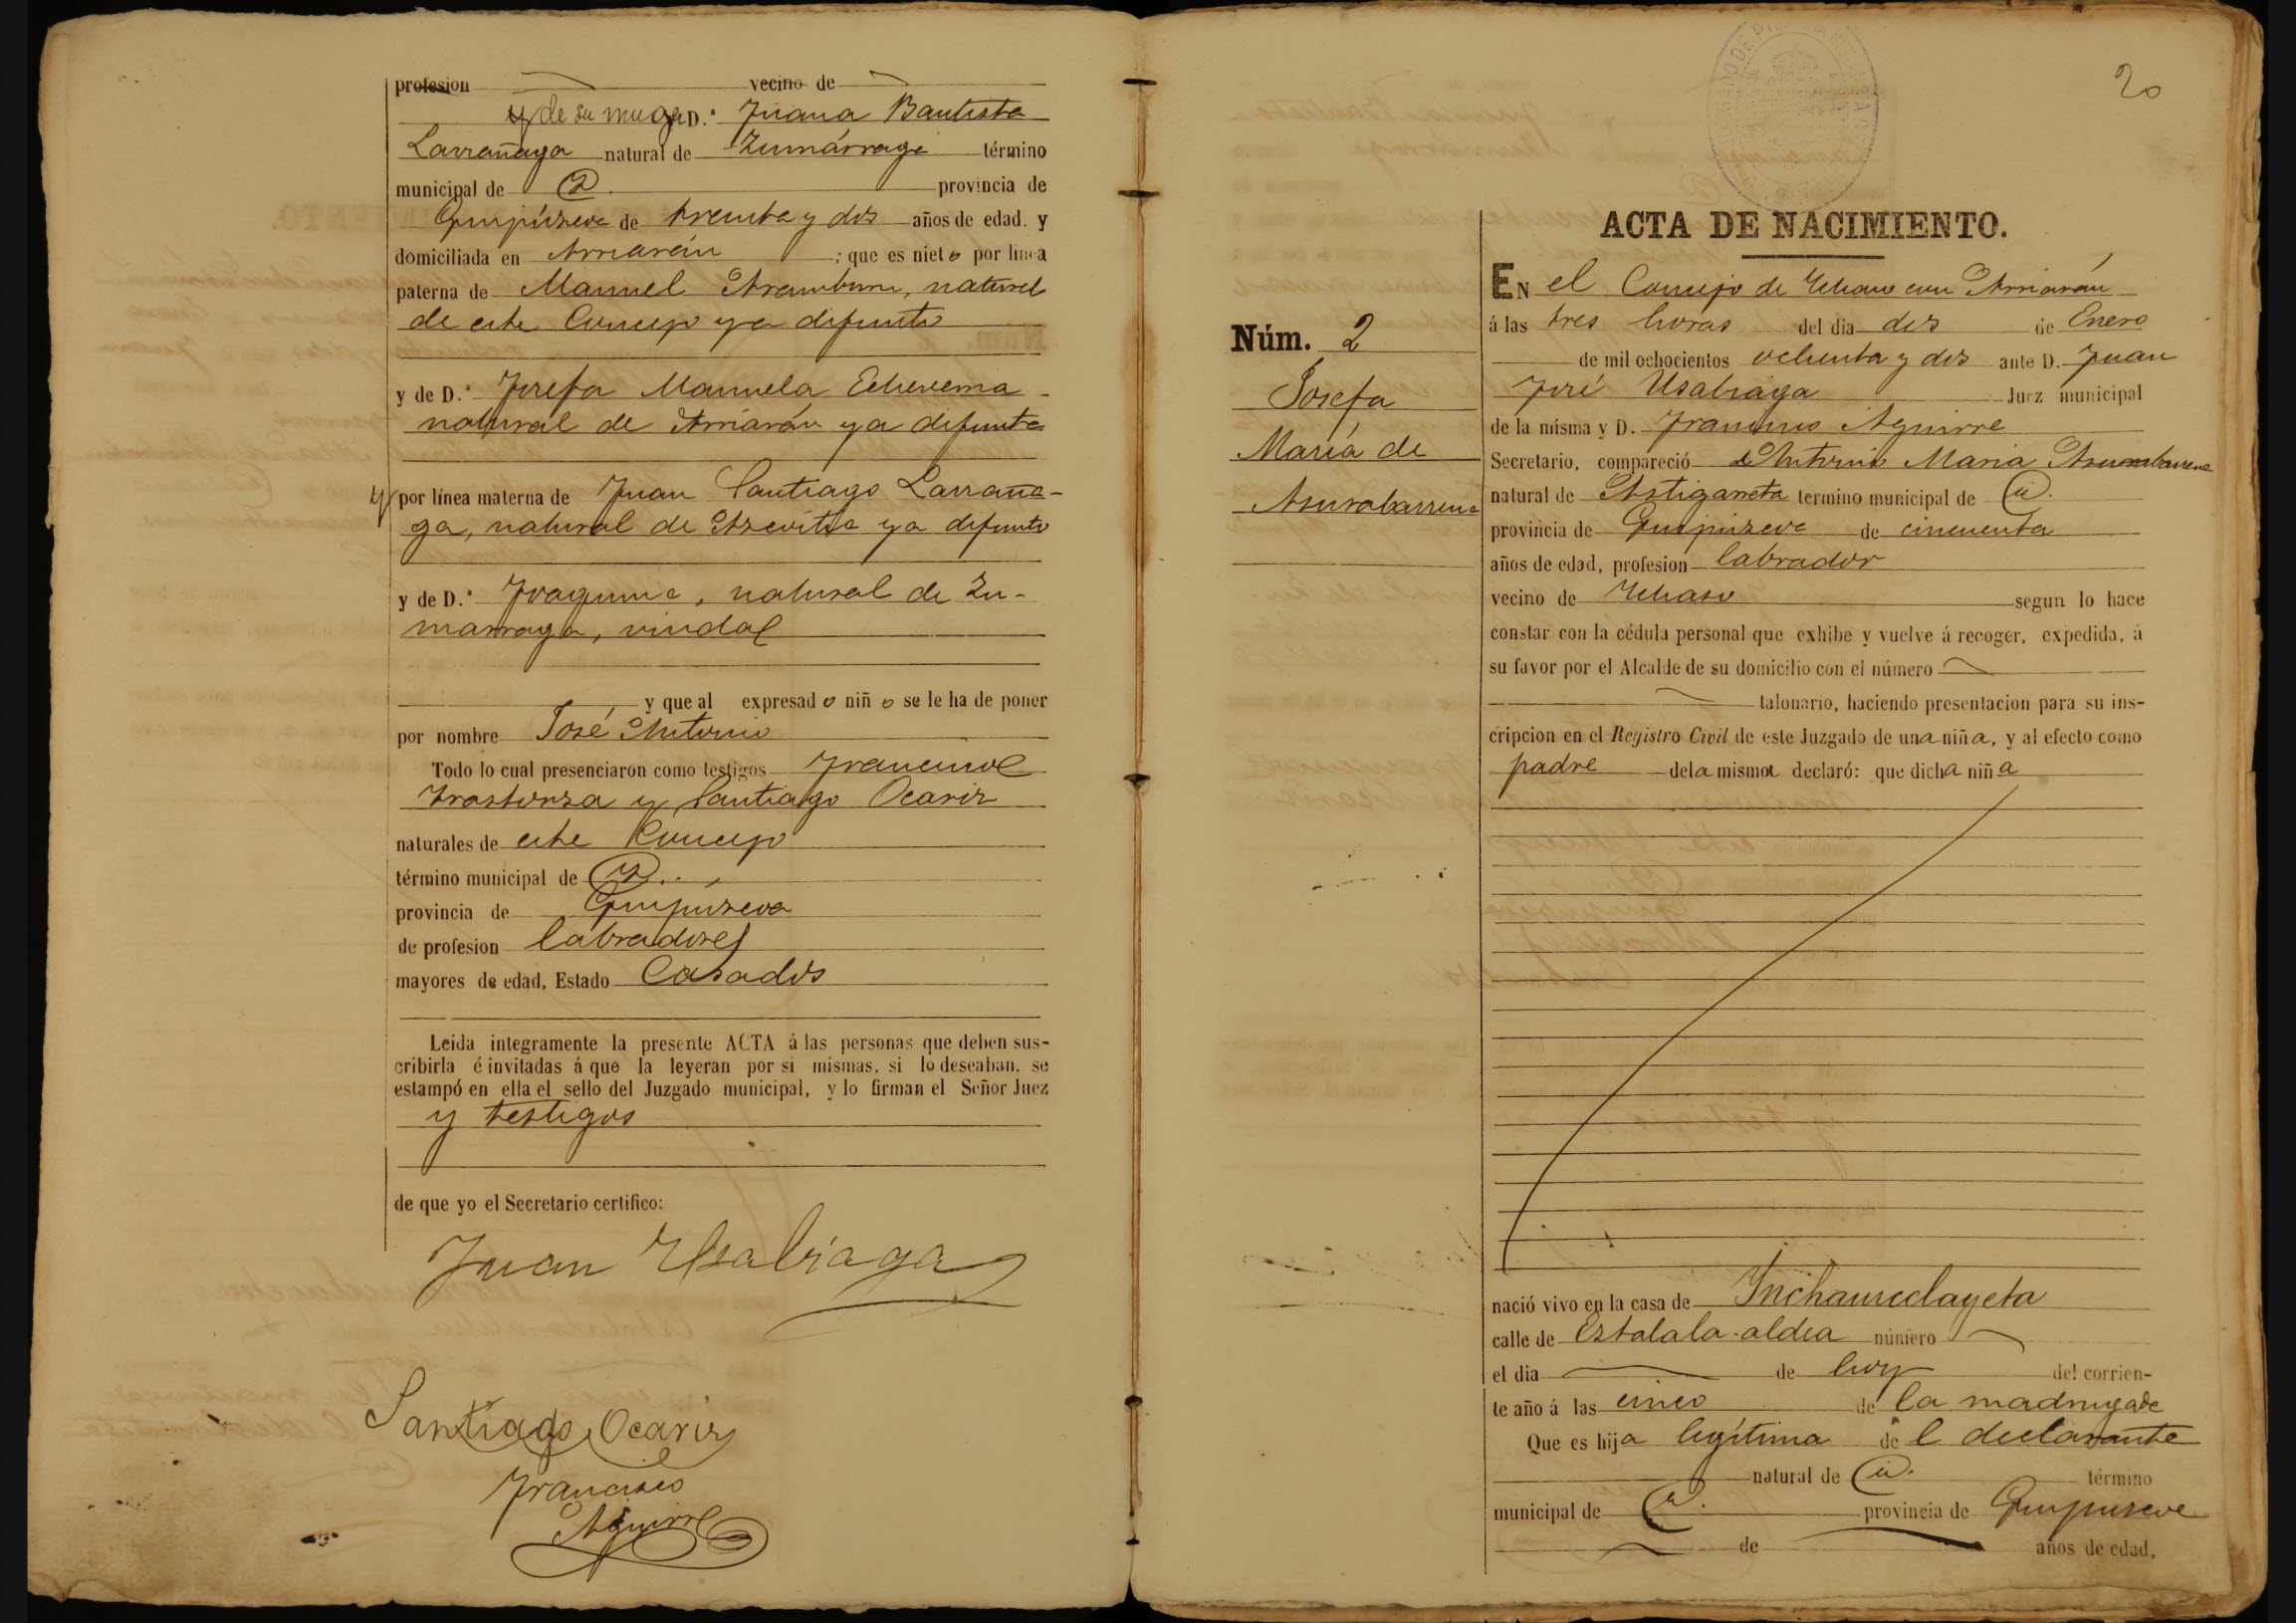 profesion vecino de
y de su muger D.ª Juana Bautista
Larrañaga natural de Zumárraga término
municipal de id. provincia de
Guipúzcoa de treinta y dos años de edad. y
domiciliada en Arriarán ; que es nieto por línea
paterna de Manuel Aramburu, natural
de este Concejo ya difunto
y de D.ª Josefa Manuela Echeverria
natural de Arriarán ya difunta
y por línea materna de Juan Santiago Larraña-
ga, natural de Azcoitia ya difunto
y de D.ª Joaquina, natural de Zu-
marraga, viuda
y que al expresado niño se le ha de poner
por nombre José Antonio
Todo lo cual presenciaron como testigos Francisco
y Santiago Ocariz
naturales de este Concejo
término municipal de id.
provincia de Guipuzcoa
de profesion labradores
mayores de edad, Estado Casados
Leida integramente la presente ACTA á las personas que deben sus-
cribirla é invitadas á que la leyeran por si mismas, si lo deseaban, se
estampó en ella el sello del Juzgado municipal, y lo firman el Señor Juez
y testigos
de que yo el Secretario certifico:
Juan Usabiaga
Santiago Ocariz
Francisco
Aguirre
20
ACTA DE NACIMIENTO.
Núm. 2
Josefa
María de
Asurabarrena
EN el Concejo de Ichaso con Arriarán
á las tres horas del dia dos de Enero
de mil ochocientos ochenta y dos ante D. Juan
José Usabiaga Juez municipal
de la misma y D. Francisco Aguirre
Secretario, compareció Antonio Maria Asurabarrena
natural de Astigarreta termino municipal de id.
provincia de Guipúzcoa de cincuenta
años de edad, profesion labrador
vecino de Ichaso segun lo hace
constar con la cédula personal que exhibe y vuelve á recoger, expedida, á
su favor por el Alcalde de su domicilio con el número
talonario, haciendo presentacion para su ins-
cripcion en el Registro Civil de este Juzgado de una niña, y al efecto como
padre de la misma declaró: que dicha niña
nació vivo en la casa de Inchaurdayeta
calle de Estalala-aldea número
el dia de hoy del corrien-
te año á las cinco de la madrugada
Que es hija legítima de l declarante
natural de id. término
municipal de id. provincia de Guipuzcoa
de años de edad,